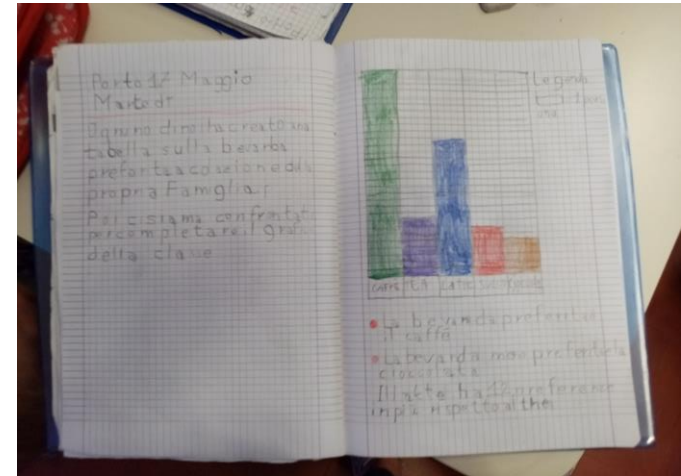 Porto 17 Maggio
Martedì
Ognuno di noi ha creato una
tabella sulla bevanda
preferita a colazione della
propria Famiglia,
Poi ci siamo confrontati
per completare il grafico
della classe
Legenda
1 perso
ona
CAFFÈ TEA LATTE
La bevanda preferita è
il caffè
La bevanda meno preferita è la
cioccolata
Il latte ha preferenze
in più rispetto al the